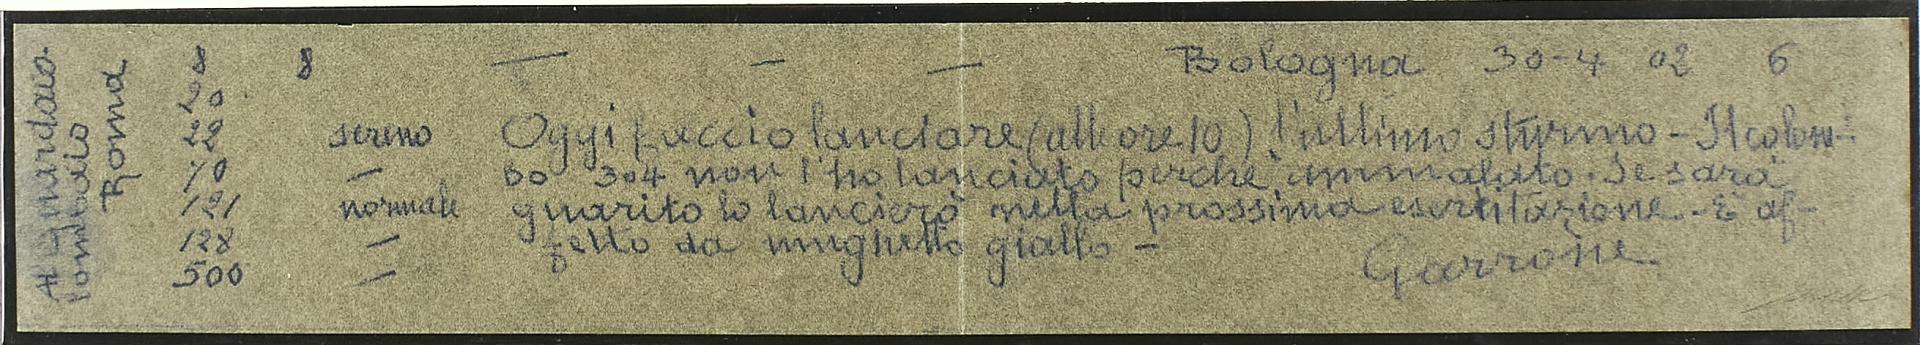 Al Guardao.
lombaio
Roma
200
220
70
121
128
500
8 — — — Bologna 30-4 02 6
sereno Oggi faccio lanciare (alle ore 10) l'ultimo stormo - Il colom-
— bo 304 non l'ho lanciato perchè ammalato. Se sarà
normale guarito lo lancierò nella prossima esercitazione. - È af-
— fetto da mughetto giallo -
—
Garrone